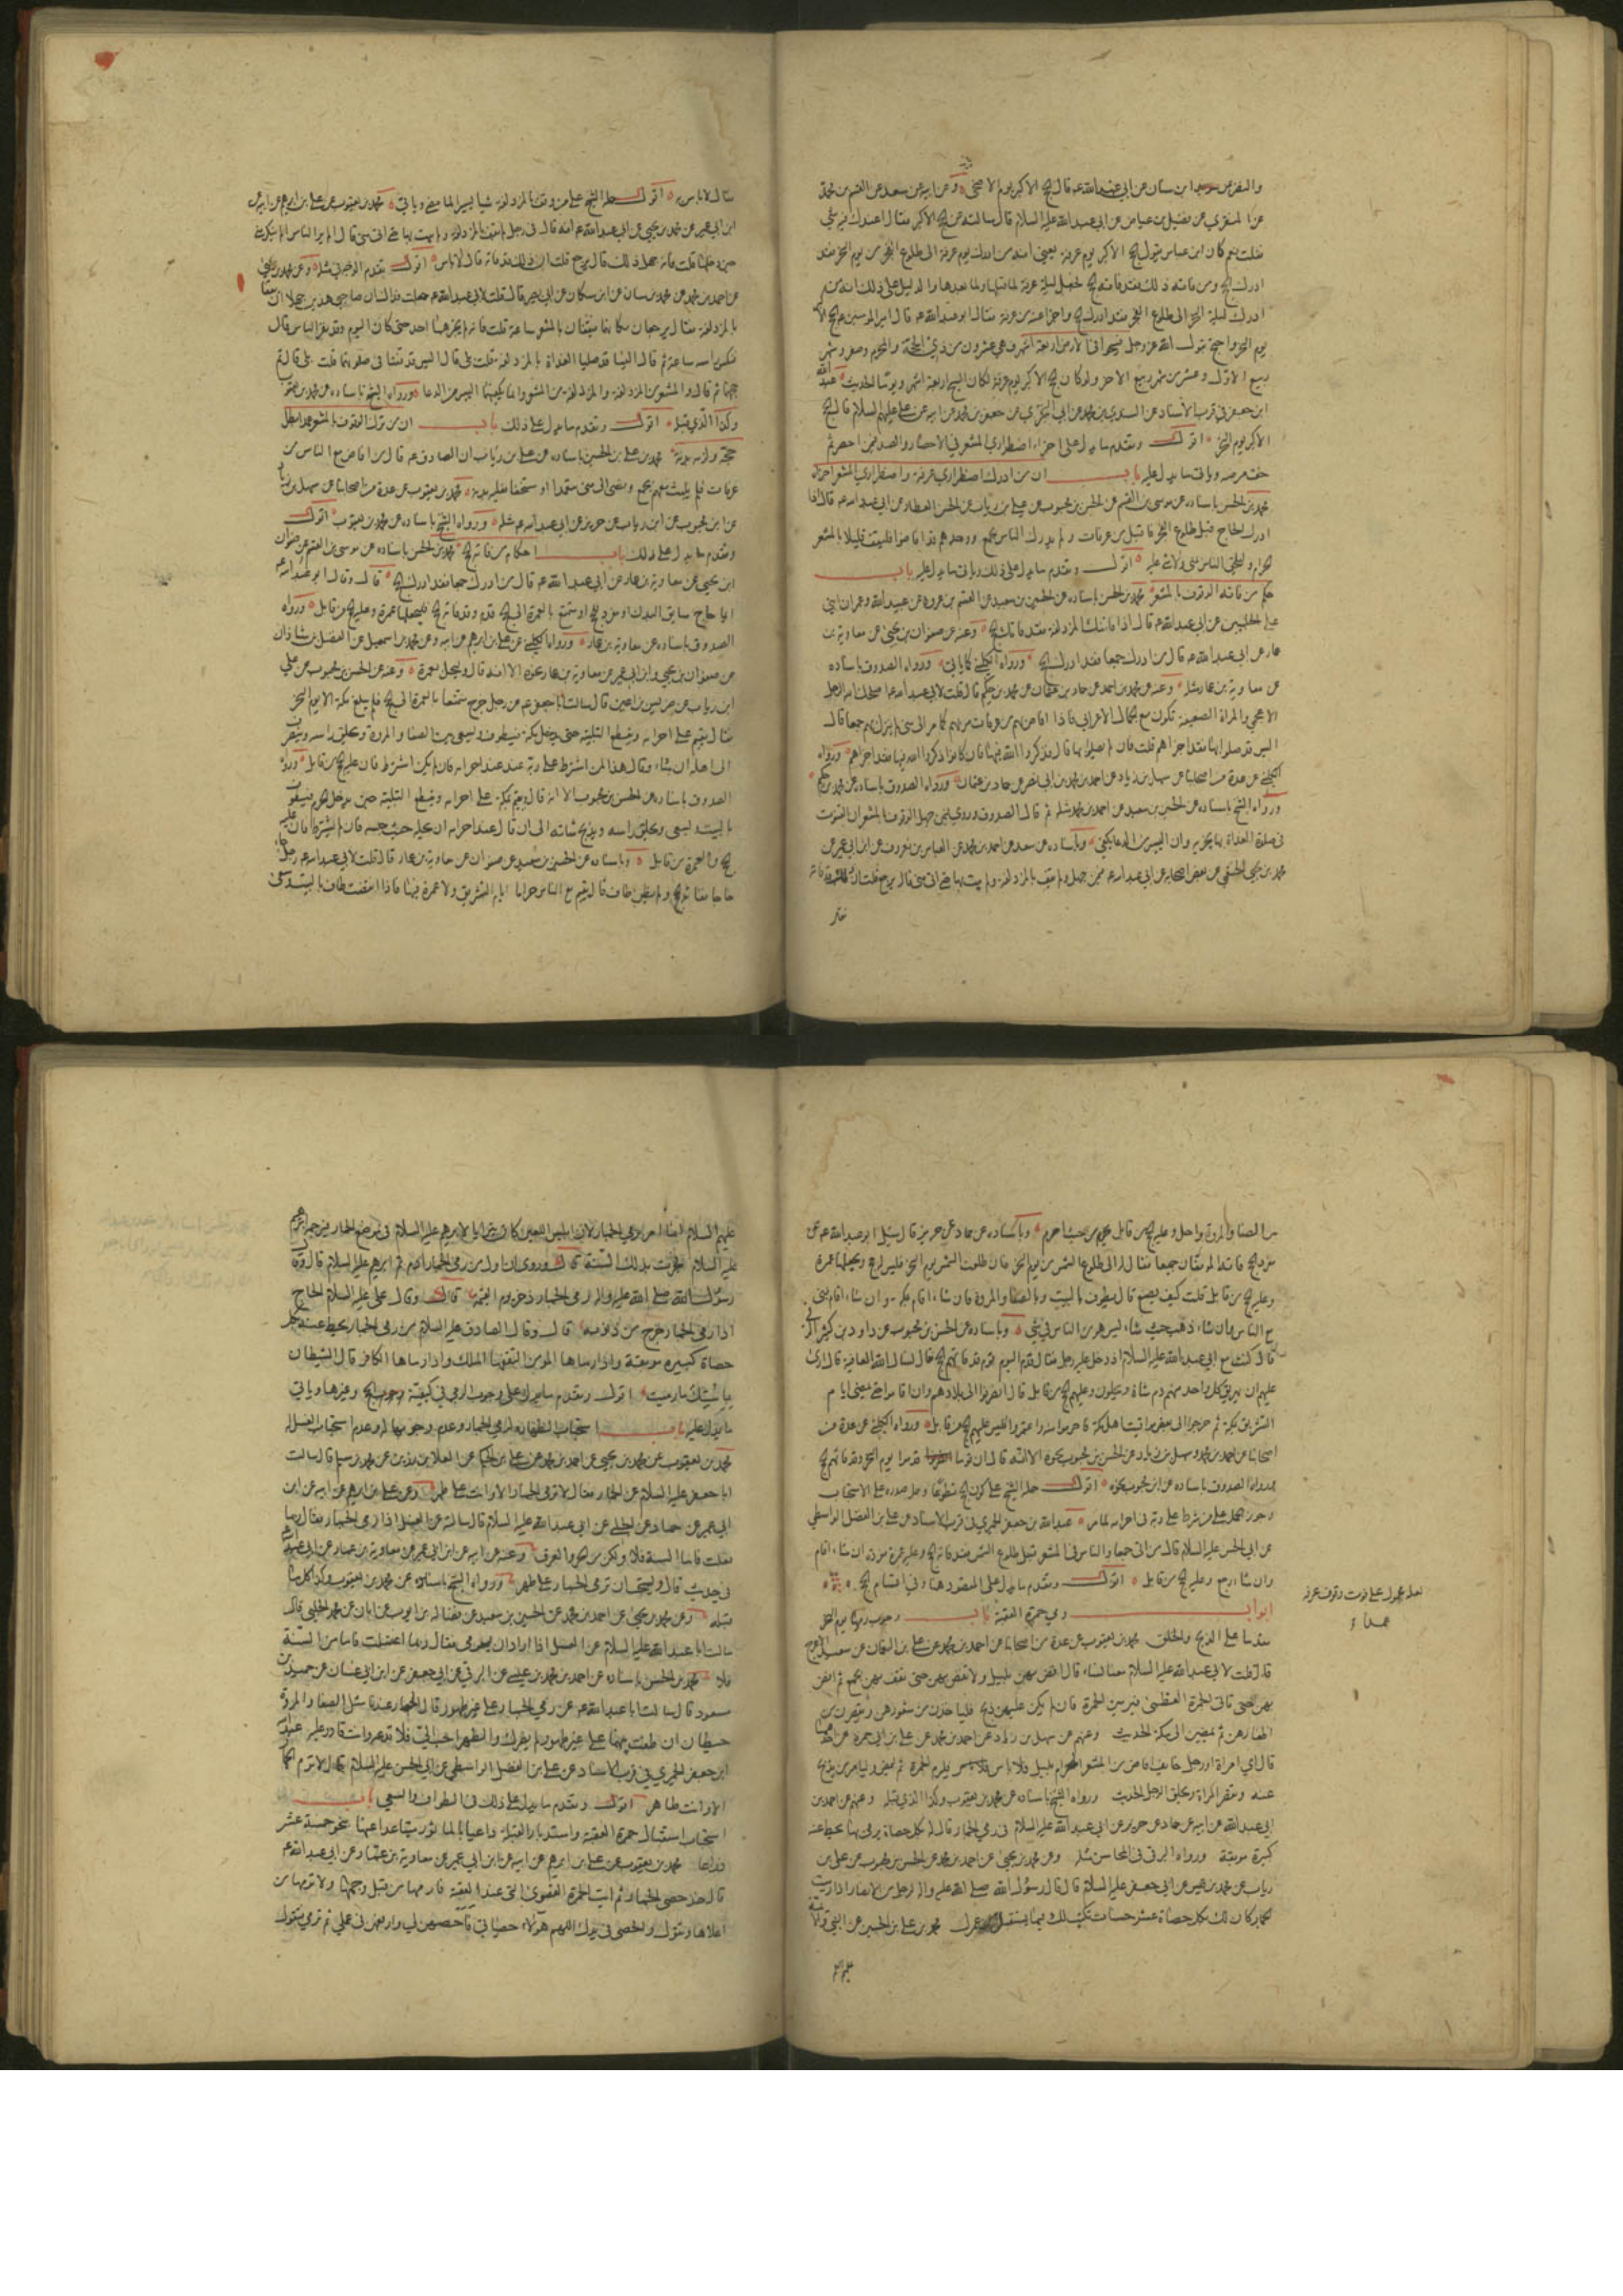 والنضر عن ابن سنان عن ابي عبد الله ع قال الحج الاكبر يوم الاضحى وعن ابيه عن سعد عن القسم بن محمد
عن المنقري عن فضيل بن عياض عن ابي عبد الله عليه السلام قال سالته عن الحج الاكبر فقال اعندك فيه شي
فقلت نعم كان ابن عباس يقول الحج الاكبر يوم عرفة يعني انه من ادرك يوم عرفة الى طلوع الفجر من يوم النحر فقد
ادرك الحج ومن فاته ذلك فقد فاته الحج فجعل ليلة عرفة لما قبلها ولما بعدها والدليل على ذلك انه من
ادرك ليلة النحر الى طلوع الفجر فقد ادرك الحج واجزا عنه من عرفة فقال ابو عبد الله ع قال امير المومنين ع الحج الاكبر
يوم النحر واحتج بقول الله عز وجل فسيحوا في الارض اربعة اشهر فهي عشرون من ذي الحجة والمحرم وصفر وشهر
ربيع الاول وعشر من شهر ربيع الاخر ولو كان الحج الاكبر يوم عرفة لكان السيح اربعة اشهر ويوما الحديث عبد الله
ابن جعفر في قرب الاسناد عن السندي بن محمد عن ابي البختري عن جعفر بن محمد عن ابيه عن علي عليهم السلام قال الحج
الاكبر يوم النحر اقول وتقدم ما يدل على اجزاء اضطراري المشعر في الاحصار والصد فيمن احصر ثم
خف مرضه وياتي ما يدل عليه باب ان من ادرك اضطراري عرفة واضطراري المشعر اجزاه
محمد بن الحسن باسناده عن موسى بن القسم عن الحسن بن محبوب عن علي بن رياب عن الحسن العطار عن ابي عبد الله ع قال اذا
ادرك الحاج قبل طلوع الفجر فاقبل من عرفات ولم يدرك الناس بجمع ووجدهم قد افاضوا فليقف قليلا بالمشعر
الحرام وليلحق الناس بمنى ولا شي عليه اقول وتقدم ما يدل على ذلك وياتي ما يدل عليه باب
حكم من فاته الوقوف بالمشعر محمد بن الحسن باسناده عن الحسين بن سعيد عن القسم بن عروة عن عبيد الله وعمران ابني
علي الحلبيين عن ابي عبد الله ع قال اذا فاتتك المزدلفة فقد فاتك الحج وعنه عن صفوان بن يحيى عن معاوية بن
عمار عن ابي عبد الله ع قال من ادرك جمعا فقد ادرك الحج ورواه الكليني كما ياتي ورواه الصدوق باسناده
عن معاوية بن عمار مثله وعنه عن محمد بن احمد عن حماد بن عثمان عن محمد بن حكيم قال قلت لابي عبد الله ع اصلحك الله الرجل
الاعجمي والمراة الضعيفة تكون مع الجمال الاعرابي فاذا افاض بهم من عرفات مر بهم كما مر الى منى لم ينزل بهم جمعا قال
اليس قد صلوا بها فقد اجزاهم قلت فان لم يصلوا بها قال فذكروا الله فيها فان كانوا ذكروا الله فيها فقد اجزاهم ورواه
الكليني عن عدة من اصحابنا عن سهل بن زياد عن احمد بن محمد بن ابي نصر عن حماد بن عثمان ورواه الصدوق باسناده عن محمد بن حكيم
ورواه الشيخ باسناده عن الحسين بن سعيد عن احمد بن محمد مثله ثم قال الصدوق وروي فيمن جهل الوقوف بالمشعر ان القنوت
في صلوة الغداة بها يجزيه وان اليسير من الدعا يكفي وباسناده عن سعد عن احمد بن محمد عن العباس بن معروف عن ابن ابي عمير عن
محمد بن يحيى الخثعمي عن بعض اصحابه عن ابي عبد الله ع فيمن جهل ولم يقف بالمزدلفة ولم يبت بها حتى اتى منى قال يرجع قلت ان ذلك قد فاته
فقال
فقال لا باس به اقول حمله الشيخ على من وقف بالمزدلفة شيا يسيرا لما مضى وياتي محمد بن يعقوب عن علي بن ابراهيم عن ابيه عن
ابن ابي عمير عن محمد بن يحيى عن ابي عبد الله ع انه قال في رجل لم يقف بالمزدلفة ولم يبت بها حتى اتى منى قال الم ير الناس لم ينكر منى
حين دخلها قلت فانه جهل ذلك قال يرجع قلت ان ذلك قد فاته قال لا باس اقول تقدم الوجه في مثله وعن محمد بن يحيى
عن احمد بن محمد عن محمد بن سنان عن ابن مسكان عن ابي بصير قال قلت لابي عبد الله ع جعلت فداك ان صاحبي هذين جهلا ان يقفا
بالمزدلفة فقال يرجعان مكانهما فيقفان بالمشعر ساعة قلت فانه لم يخبرهما احد حتى كان اليوم وقد نفر الناس قال
فنكس راسه ساعة ثم قال اليسا قد صليا الغداة بالمزدلفة قلت بلى قال اليس قد قنتا في صلوتهما قلت بلى قال تم
حجهما ثم قال والمشعر من المزدلفة والمزدلفة من المشعر وانما يكفيهما اليسير من الدعا ورواه الشيخ باسناده عن محمد بن يعقوب
وكذا الذي قبله اقول وتقدم ما يدل على ذلك باب ان من ترك الوقوف بالمشعر عمدا بطل
حجه ولزمه بدنة محمد بن علي بن الحسين باسناده عن علي بن رياب ان الصادق ع قال من افاض مع الناس من
عرفات فلم يلبث معهم بجمع ومضى الى منى متعمدا او مستخفا فعليه بدنة محمد بن يعقوب عن عدة من اصحابنا عن سهل بن زياد
عن ابن محبوب عن ابن رياب عن حريز عن ابي عبد الله ع مثله ورواه الشيخ باسناده عن محمد بن يعقوب اقول
وتقدم ما يدل على ذلك باب احكام من فاته الحج محمد بن الحسن باسناده عن موسى بن القسم عن صفوان
ابن يحيى عن معاوية بن عمار عن ابي عبد الله ع قال من ادرك جمعا فقد ادرك الحج قال وقال ابو عبد الله ع
ايما حاج سايق للهدي او مفرد للحج او متمتع بالعمرة الى الحج قدم وقد فاته الحج فليجعلها عمرة وعليه الحج من قابل ورواه
الصدوق باسناده عن معاوية بن عمار ورواه الكليني عن علي بن ابراهيم عن ابيه وعن محمد بن اسمعيل عن الفضل بن شاذان
عن صفوان بن يحيى وابن ابي عمير عن معاوية بن عمار نحوه الا انه قال وليحل بعمرة وعنه عن الحسن بن محبوب عن علي
ابن رياب عن ضريس بن اعين قال سالت ابا جعفر ع عن رجل خرج متمتعا بالعمرة الى الحج فلم يبلغ مكة الا يوم النحر
فقال يقيم على احرامه ويقطع التلبية حتى يدخل مكة فيطوف ويسعى بين الصفا والمروة ويحلق راسه وينصرف
الى اهله ان شاء وقال هذا لمن اشترط على ربه عند احرامه فان لم يكن اشترط فان عليه الحج من قابل ورواه
الصدوق باسناده عن الحسن بن محبوب الا انه قال يقيم بمكة على احرامه ويقطع التلبية حين يدخل الحرم فيطوف
بالبيت ويسعى ويحلق راسه ويذبح شاته الى ان قال عند احرامه ان يحله حيث حبسه فان لم يشترط فان عليه
الحج والعمرة من قابل وباسناده عن الحسين بن سعيد عن صفوان عن معاوية بن عمار قال قلت لابي عبد الله ع رجل جاء
حاجا ففاته الحج ولم يكن طاف قال يقيم مع الناس حراما ايام التشريق ولا عمرة فيها فاذا انقضت طاف بالبيت وسعى
بين الصفا والمروة واحل وعليه الحج من قابل يحرم من حيث احرم وباسناده عن حماد عن حريز قال سئل ابو عبد الله ع عن
مفرد الحج فاته الموقفان جميعا فقال له الى طلوع الشمس من يوم النحر فان طلعت الشمس يوم النحر فليس له حج ويجعلها عمرة
وعليه الحج من قابل قلت كيف يصنع قال يطوف بالبيت وبالصفا والمروة فان شاء اقام بمكة وان شاء اقام بمنى
مع الناس وان شاء ذهب حيث شاء ليس هو من الناس في شي وباسناده عن الحسن بن محبوب عن داود بن كثير الرقي
قال كنت مع ابي عبد الله عليه السلام اذ دخل عليه رجل فقال قدم اليوم قوم قد فاتهم الحج فقال نسال الله العافية قال ارى
عليهم ان يهريق كل واحد منهم دم شاة ويحلون وعليهم الحج من قابل ان انصرفوا الى بلادهم وان اقاموا حتى تمضي ايام
التشريق بمكة ثم خرجوا الى بعض مواقيت اهل مكة فاحرموا منه واعتمروا فليس عليهم الحج من قابل ورواه الكليني عن عدة من
اصحابنا عن احمد بن محمد وسهل بن زياد عن الحسن بن محبوب نحوه الا انه قال ان قوما قدموا يوم النحر وقد فاتهم الحج
ورواه الصدوق باسناده عن ابن محبوب نحوه اقول حمله الشيخ على كون الحج تطوعا وحمل صدره على الاستحباب
وجوز الحمل على من شرط على ربه في احرامه لما مر عبد الله بن جعفر الحميري في قرب الاسناد عن علي بن الفضل الواسطي
عن ابي الحسن عليه السلام قال من اتى جمعا والناس في المشعر قبل طلوع الشمس فقد فاته الحج وعليه عمرة مفردة ان شاء اقام
وان شا رجع وعليه الحج من قابل اقول وتقدم ما يدل على المقصود هنا وفي اقسام الحج
لعله محمول على فوت وقوف عرفة
عمدا
ابواب رمي جمرة العقبة باب وجوب رميها يوم النحر
مقدما على الذبح والحلق محمد بن يعقوب عن عدة من اصحابنا عن احمد بن محمد عن علي بن النعمان عن سعيد الاعرج
قال قلت لابي عبد الله عليه السلام معنا نساء قال افض بهن بليل ولا تفض بهن حتى تقف بهن بجمع ثم افض
بهن حتى تاتي الجمرة العظمى فيرمين الجمرة فان لم يكن عليهن ذبح فلياخذن من شعورهن ويقصرن من
اظفارهن ثم يمضين الى مكة الحديث وعنهم عن سهل بن زياد عن احمد بن محمد عن علي بن ابي حمزة عن احدهما
قال اي امراة او رجل خايف افاض من المشعر الحرام بليل فلا باس فليرم الجمرة ثم ليمض وليامر من يذبح
عنه وتقصر المراة ويحلق الرجل الحديث ورواه الشيخ باسناده عن محمد بن يعقوب وكذا الذي قبله وعنهم عن احمد بن
ابي عبد الله عن ابيه عن حماد عن حريز عن ابي عبد الله عليه السلام في رمي الجمار قال له بكل حصاة يرمى بها يحط عنه
كبيرة موبقة ورواه البرقي في المحاسن مثله وعن محمد بن يحيى عن احمد بن محمد عن الحسن بن محبوب عن علي بن
رياب عن محمد بن قيس عن ابي جعفر عليه السلام قال قال رسول الله صلى الله عليه واله لرجل من الانصار اذا رميت
الجمار كان لك بكل حصاة عشر حسنات تكتب لك فيما يستقبل من عمرك محمد بن علي بن الحسين عن النبي والائمة
عليهم السلم
عليهم السلام انما امر برمي الجمار لان ابليس اللعين كان يتراءا لابرهيم عليه السلام في موضع الجمار فيرجمه ابرهيم
عليه السلام فجرت بذلك السنة قال وروي ان اول من رمى الجمار ادم ثم ابرهيم عليه السلام قال وقال
رسول الله صلى الله عليه واله رمي الجمار ذخر يوم القيمة قال وقال علي عليه السلام الحاج
اذا رمى الجمار خرج من ذنوبه قال وقال الصادق عليه السلام من رمى الجمار يحط عنه بكل
حصاة كبيرة موبقة واذا رماها المومن التقفها الملك واذا رماها الكافر قال الشيطان
باستك ما رميت اقول وتقدم ما يدل على وجوب الرمي في كيفية وجوب الحج وغيرها وياتي
ما يدل عليه باب استحباب الطهارة لرمي الجمار وعدم وجوبها له وعدم استحباب الغسل له
محمد بن يعقوب عن محمد بن يحيى عن احمد بن محمد عن علي بن الحكم عن العلا بن رزين عن محمد بن مسلم قال سالت
ابا جعفر عليه السلام عن الجمار فقال لا ترم الجمار الا وانت على طهر وعن علي بن ابراهيم عن ابيه عن ابن
ابي عمير عن حماد عن الحلبي عن ابي عبد الله عليه السلام قال سالته عن الغسل اذا رمى الجمار فقال ربما
فعلت فاما السنة فلا ولكن من الحر والعرق وعنه عن ابيه عن ابن ابي عمير عن معاوية بن عمار عن ابي عبد الله
في حديث قال ويستحب ان ترمي الجمار على طهر ورواه الشيخ باسناده عن محمد بن يعقوب وكذا كل ما
قبله وعن محمد بن يحيى عن احمد بن محمد عن الحسين بن سعيد عن فضالة بن ايوب عن ابان عن محمد الحلبي قال
سالت ابا عبد الله عليه السلام عن الغسل اذا اراد ان يرمي فقال ربما اغتسلت فاما من السنة
فلا محمد بن الحسن باسناده عن احمد بن محمد بن عيسى عن البرقي عن ابي جعفر عن ابن ابي غسان عن حميد بن
مسعود قال سالت ابا عبد الله ع عن رمي الجمار على غير طهور قال الجمار عندنا مثل الصفا والمروة
حيطان ان طفت بينهما على غير طهور لم يضرك والطهر احب الي فلا تدعه وانت قادر عليه عبد الله
ابن جعفر الحميري في قرب الاسناد عن علي بن الفضل الواسطي عن ابي الحسن عليه السلام قال لا ترم الجمار
الا وانت طاهر اقول وتقدم ما يدل على ذلك في الطواف والسعي باب
استحباب استقبال جمرة العقبة واستدبار القبلة داعيا بالماثور متباعدا عنها نحو خمسة عشر
ذراعا محمد بن يعقوب عن علي بن ابرهيم عن ابيه عن ابن ابي عمير عن معاوية بن عمار عن ابي عبد الله ع
قال خذ حصى الجمار ثم ايت الجمرة القصوى التي عند العقبة فارمها من قبل وجهها ولا ترمها من
اعلاها وتقول والحصى في يدك اللهم هولاء حصياتي فاحصهن لي وارفعهن في عملي ثم ترمي وتقول